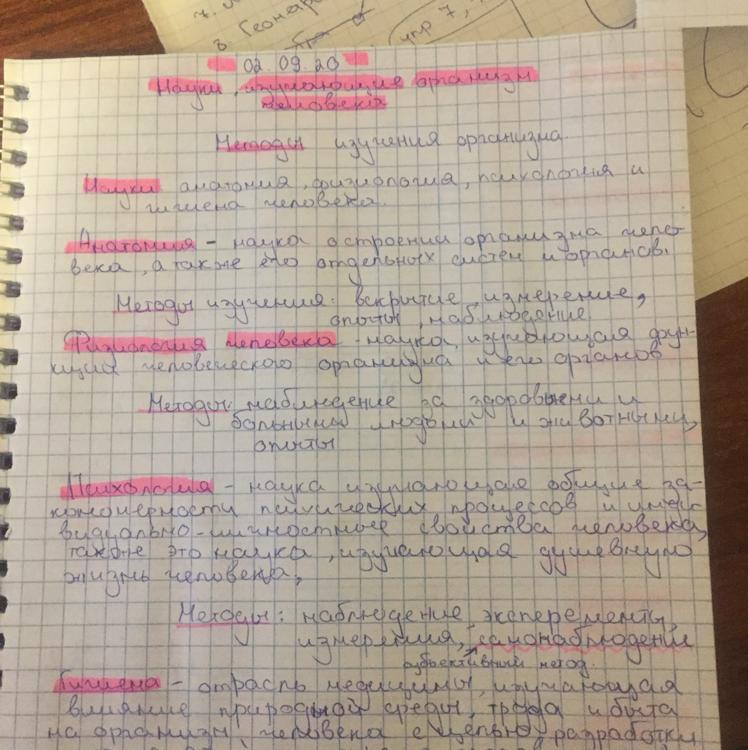 7.
3. Геогра
упр 7,
02.09.20
Науки, изучающие организм
человека
Методы изучения организма.
Науки анатомия, физиология, психология и
гигиена человека.
Анатомия - наука о строении организма чело-
века, а также его отдельных систем и органов.
Методы изучения: вскрытие, измерение,
опыты, наблюдение
Физиология человека - наука, изучающая фун-
кции человеческого организма и его органов
Методы: наблюдение за здоровыми и
больными людьми и животными,
опыты
Психология - наука изучающая общие за-
кономерности психических процессов и инди-
видуально-личностные свойства человека,
также это наука, изучающая душевную
жизнь человека,
Методы: наблюдение, эксперементы,
измерения, самонаблюдени
субъективный метод.
Гигиена - отрасль медицины, изучающая
влияние природной среды, труда и быта
на организм человека с целью разработки